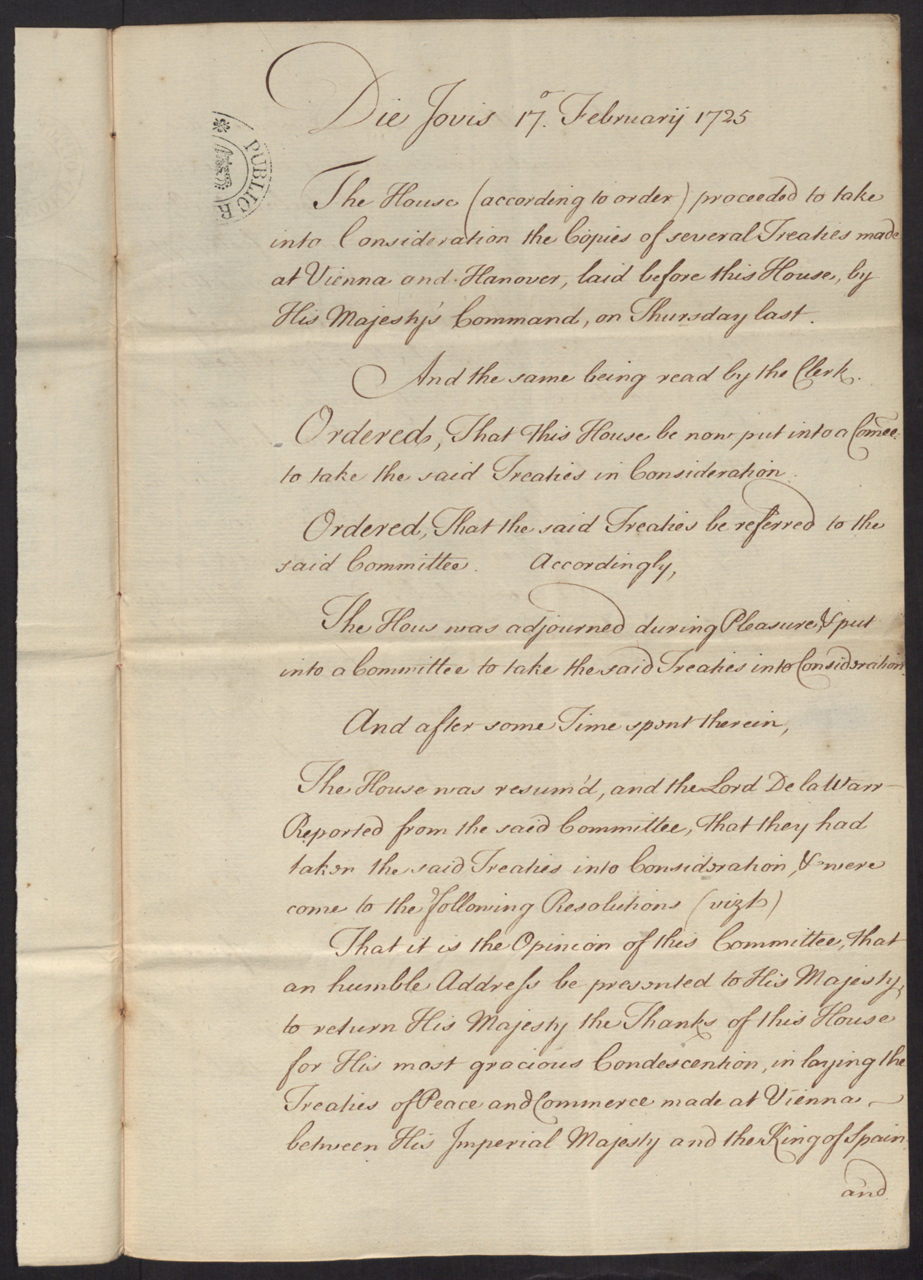 Die Jovis 17.º Februarij 1725
PUBLIC R
The House (according to order) proceeded to take
into Consideration the Copies of several Treaties made
at Vienna and Hanover, laid before this House, by
His Majesty's Command, on Thursday last.
And the same being read by the Clerk.
Ordered, That this House be now put into a Comee.
to take the said Treaties in Consideration.
Ordered, That the said Treaties be referred to the
said Committee. Accordingly,
The Hous was adjourned during Pleasure, & put
into a Committee to take the said Treaties into Consideration
And after some Time spent therein,
The House was resum'd, and the Lord De la Warr
Reported from the said Committee, that they had
taken the said Treaties into Consideration, & were
come to the following Resolutions (vizt)
That it is the Opinion of this Committee, that
an humble Address be presented to His Majesty,
to return His Majesty the Thanks of this House
for His most gracious Condescention, in laying the
Treaties of Peace and Commerce made at Vienna
between His Imperial Majesty and the King of Spain
and